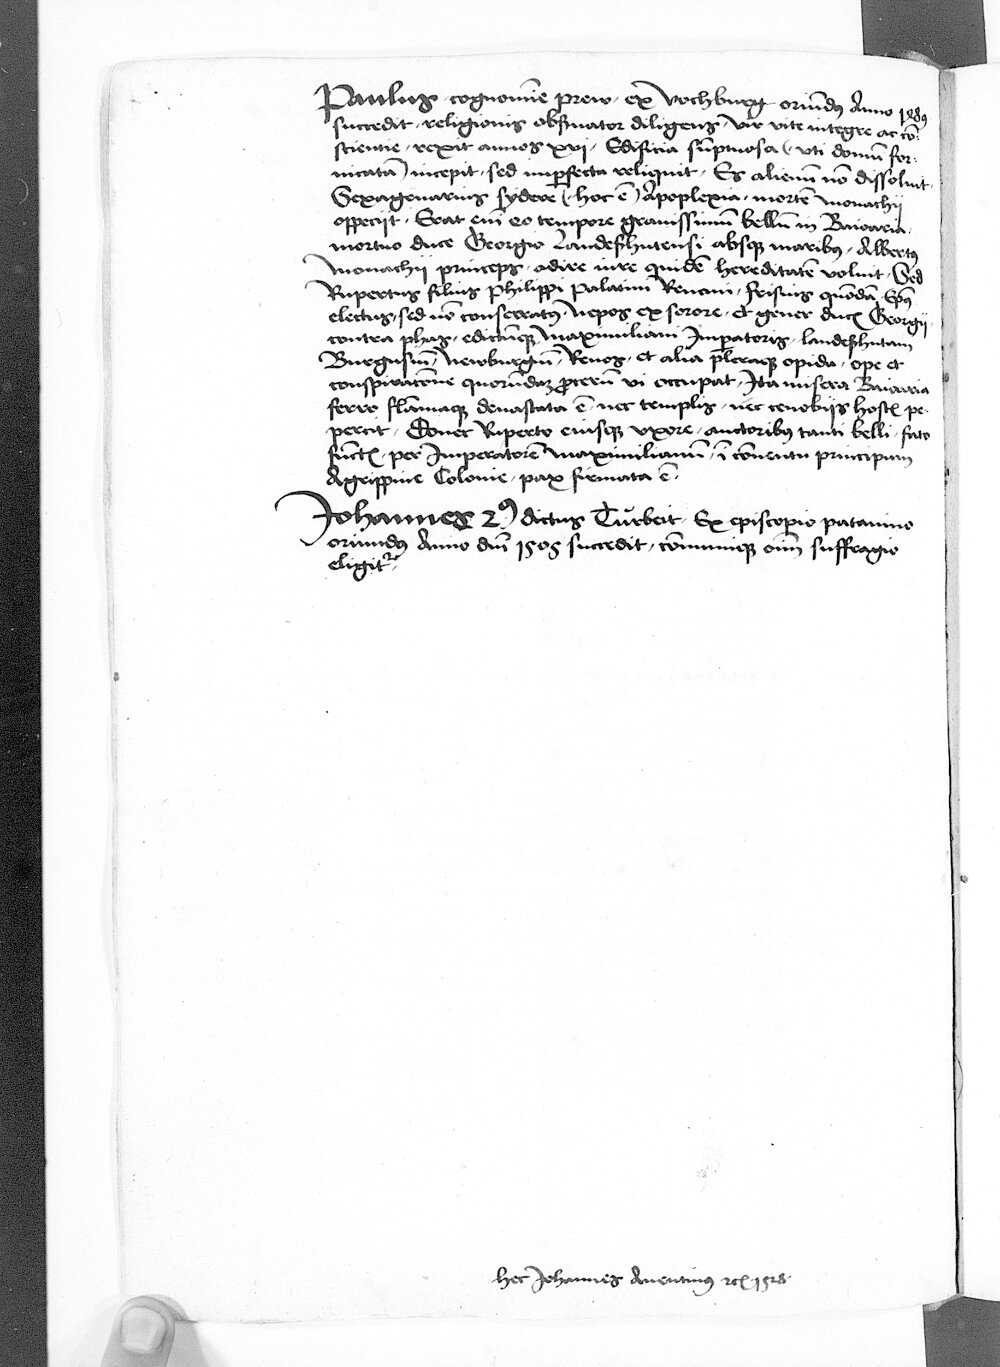 Paulus · cognomīe prew · ex Vochburg oriūdꝯ Anno 1489
succedit · religionis obſuator diligens · vir vite integre ac cō-
scientie · rexit annos xvi · Edificia sūptuosa (· vti domū for-
nicatā) incepit · sed imꝑfecta reliquit · Es alienū nō dissoluit ·
Sexagenarius sydere (· hoc ē) Apoplexia · mortē monachij
oppecijt · Erat eni eo tempore grauissimū bellū in Baioaria ·
mortuo duce Georgio Landeshutensi absqꝫ maribus · Albertꝯ
monachij princeps · adire iure quidē hereditatē voluit · Sed
Rupertus filius Philippi palatini Renani · frisius quōdā Epūs
electus, sed nō consecratꝯ · nepos ex sorore · et gener ducis Georgij ·
contra phas · edictūqꝫ Maximiliani Imꝑatoris · landeshutam
Burgusiū · newburgiū · Renos · et alia pleraqꝫ opida · ope et
conspiratōne quorūdaꝫ ꝓcerū vi occupat · Ita misera Baioaria
ferro flāmaqꝫ deuastata ē · nec templis · nec cenobijs hostis pe-
percit · Donec Ruperto eiusqꝫ vxore · auctoribus tanti belli · fato
fūctis · per Imperatorē maximilianū · ī cōuentu principum
Agrippine Colonie · pax firmata ē ·
Johannes 2ꝯ dictus Turbeit · Ex episcopio patauino
oriundꝯ Anno dnī 1505 succedit · cōmuniqꝫ oīm suffragio
eligitᷣ ·
hec Johannes Auentinꝯ